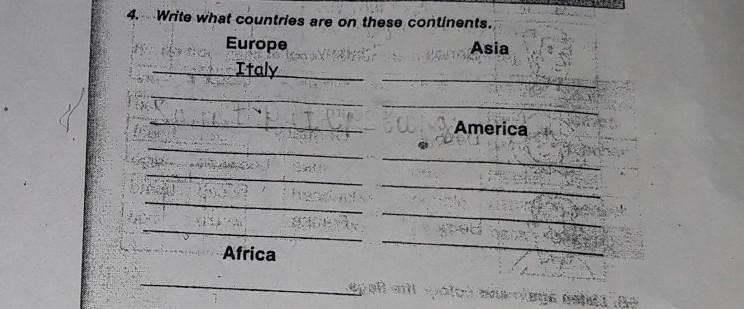 4. Write what countries are on these continents.
Europe
Italy
Asia
America
Africa